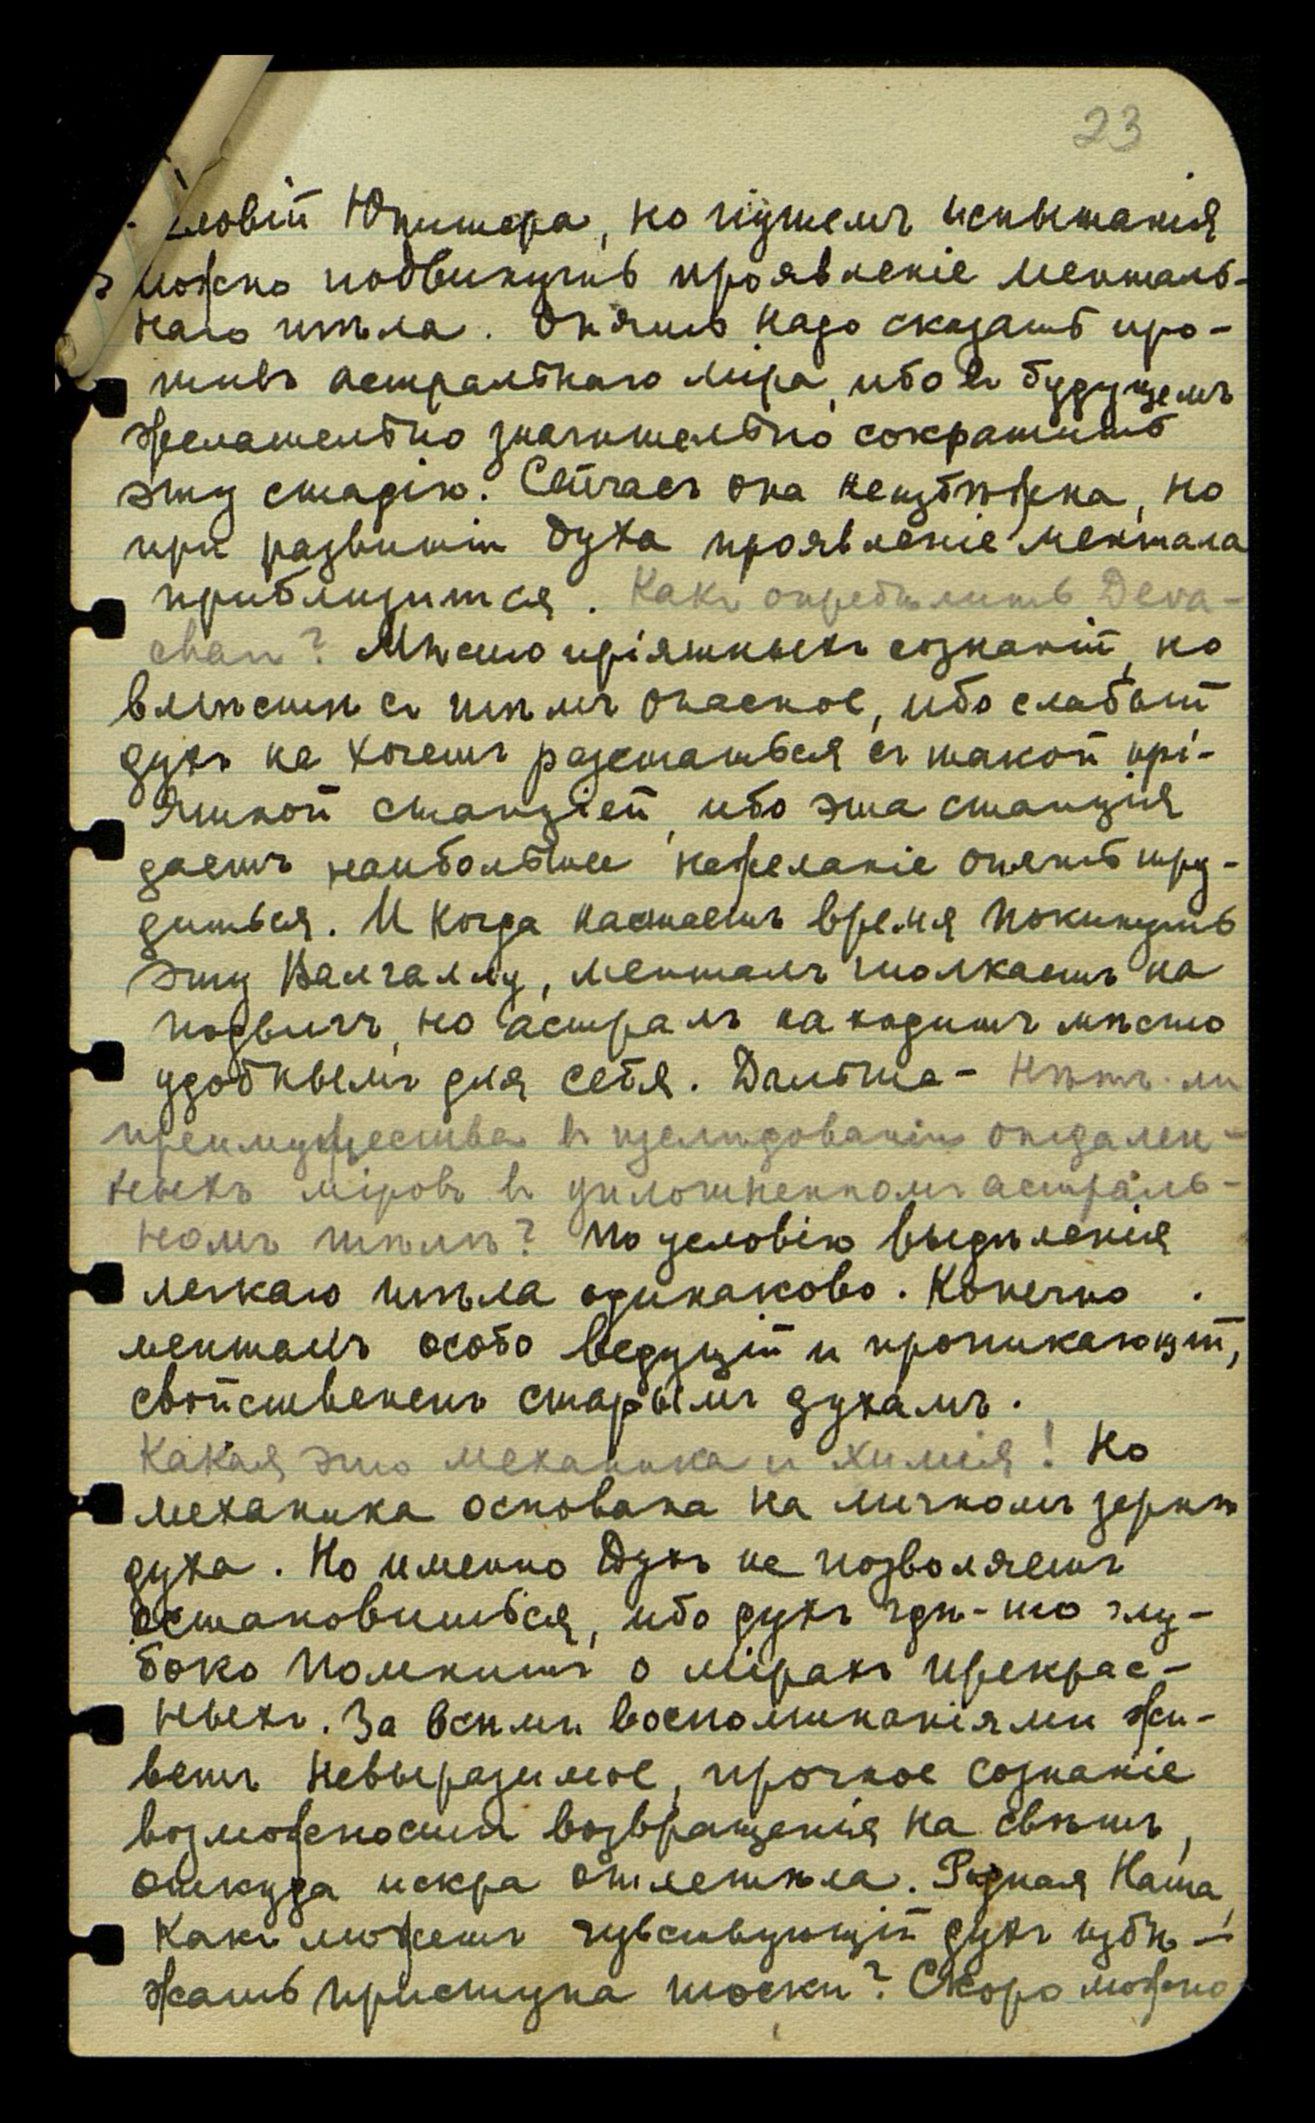 23
словій Юпитера, но путемъ испытанія
можно подвинуть проявленіе менталь-
наго тѣла. Опять надо сказать про-
тивъ астральнаго міра, ибо въ будущемъ
желательно значительно сократить
эту стадію. Сейчасъ она неизбѣжна, но
при развитіи духа проявленіе ментала
приблизится. Какъ опредѣлить Deva-
chan? Мѣсто пріятныхъ сознаній, но
вмѣстѣ съ тѣмъ опасное, ибо слабый
духъ не хочетъ разстаться съ такой прі-
ятной станціей, ибо эта станція
даетъ наибольшее нежеланіе опять тру-
диться. И когда настаетъ время покинуть
эту Валгаллу, менталъ толкаетъ на
подвигъ, но астралъ находитъ мѣсто
удобнымъ для себя. Дальше – Нѣтъ-ли
преимущества въ изслѣдованіи отдален-
ныхъ міровъ въ уплотненномъ астраль-
номъ тѣлѣ? По условію выдѣленія
легкаго тѣла одинаково. Конечно
менталъ особо ведущій и проникающій,
свойствененъ старымъ духамъ.
Какая это механика и химія! Но
механика основана на личномъ зернѣ
духа. Но именно Духъ не позволяетъ
остановиться, ибо духъ гдѣ-то глу-
боко помнитъ о мірахъ прекрас-
ныхъ. За всѣми воспоминаніями жи-
ветъ невыразимое, прочное сознаніе
возможности возвращенія на свѣтъ,
откуда искра отлетѣла. Родная Наша,
какъ можетъ чувствующій духъ избѣ-
жать приступа тоски? Скоро можно